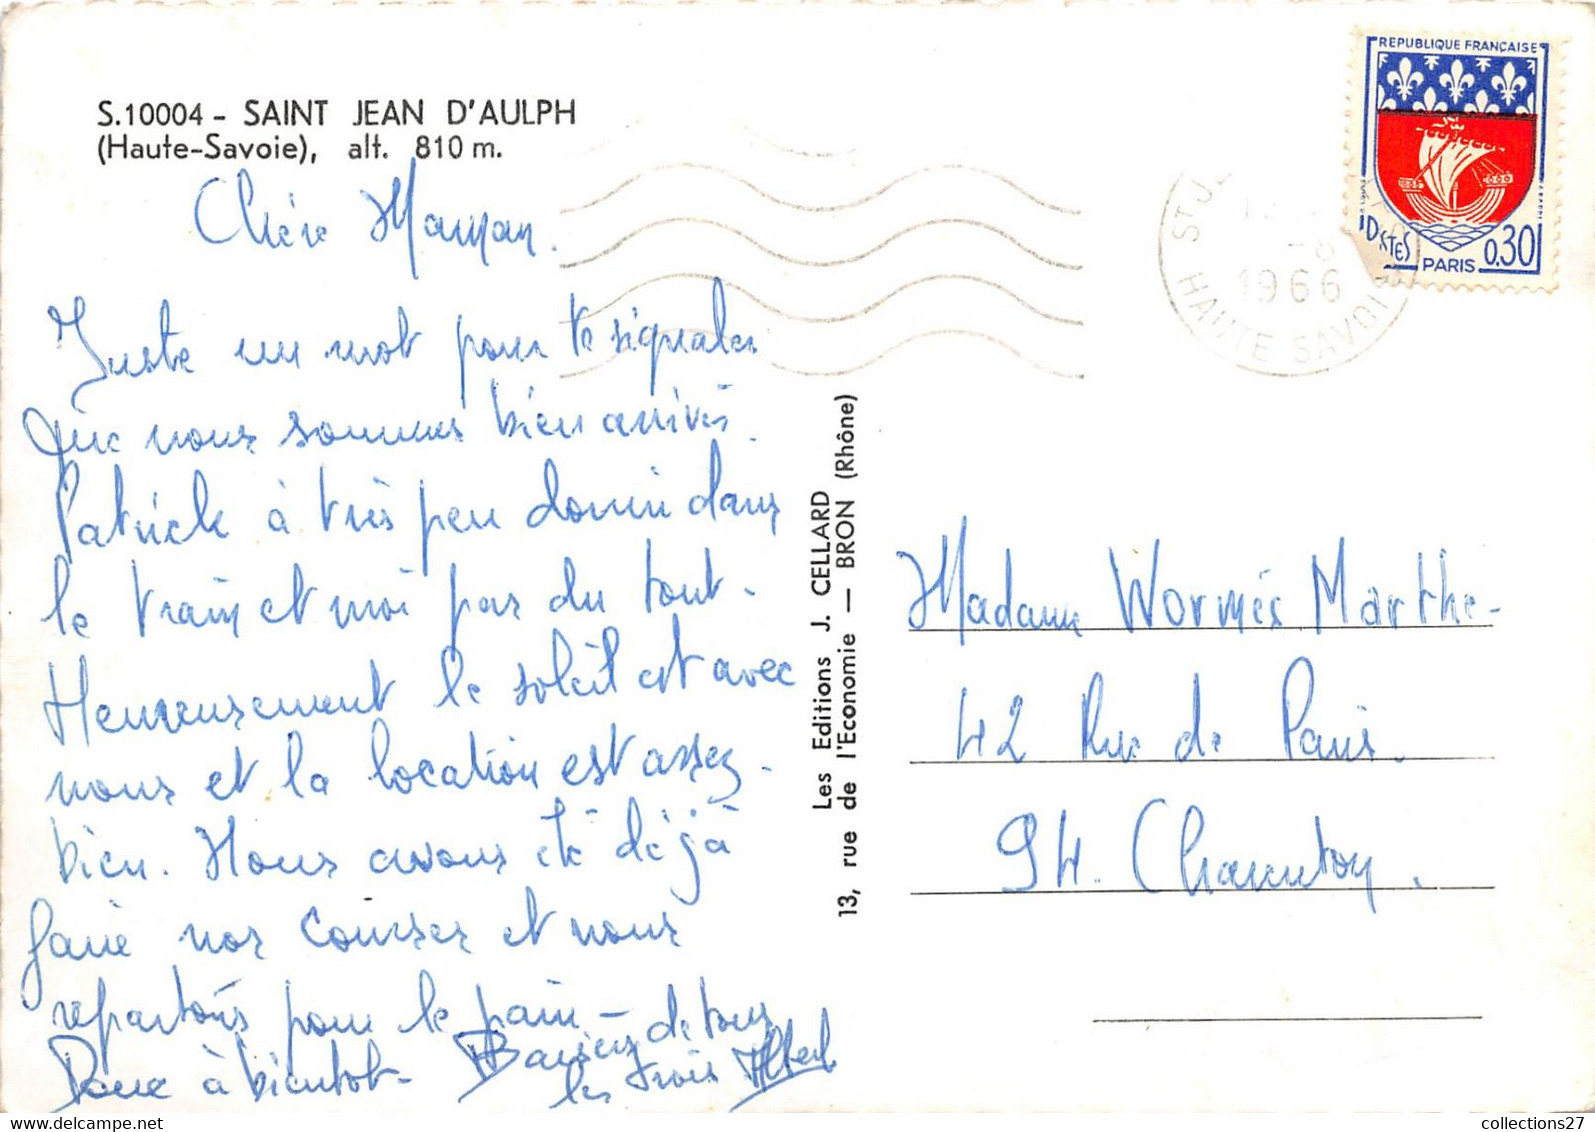 S.10004 - SAINT JEAN D'AULPH
(Haute-Savoie), alt. 810 m.
REPUBLIQUE FRANÇAISE
POSTES
PARIS 0,30
ST J
1966
HAUTE SAVOIE
Chère Maman.
Juste un mot pour te signaler
que nous sommes bien arrivés.
Patrick à très peu dormi dans
le train et moi pas du tout.
Heureusement le soleil est avec
nous et la location est assez
bien. Nous avons été déjà
faire nos courses et nous
repartons pour le pain -
Donc à bientôt - Baisers de tous
les trois Albert
Les Editions J. CELLARD
13, rue de l'Economie — BRON (Rhône)
Madame Wormés Marthe -
42 Rue de Paris.
94. Charenton.
collections27